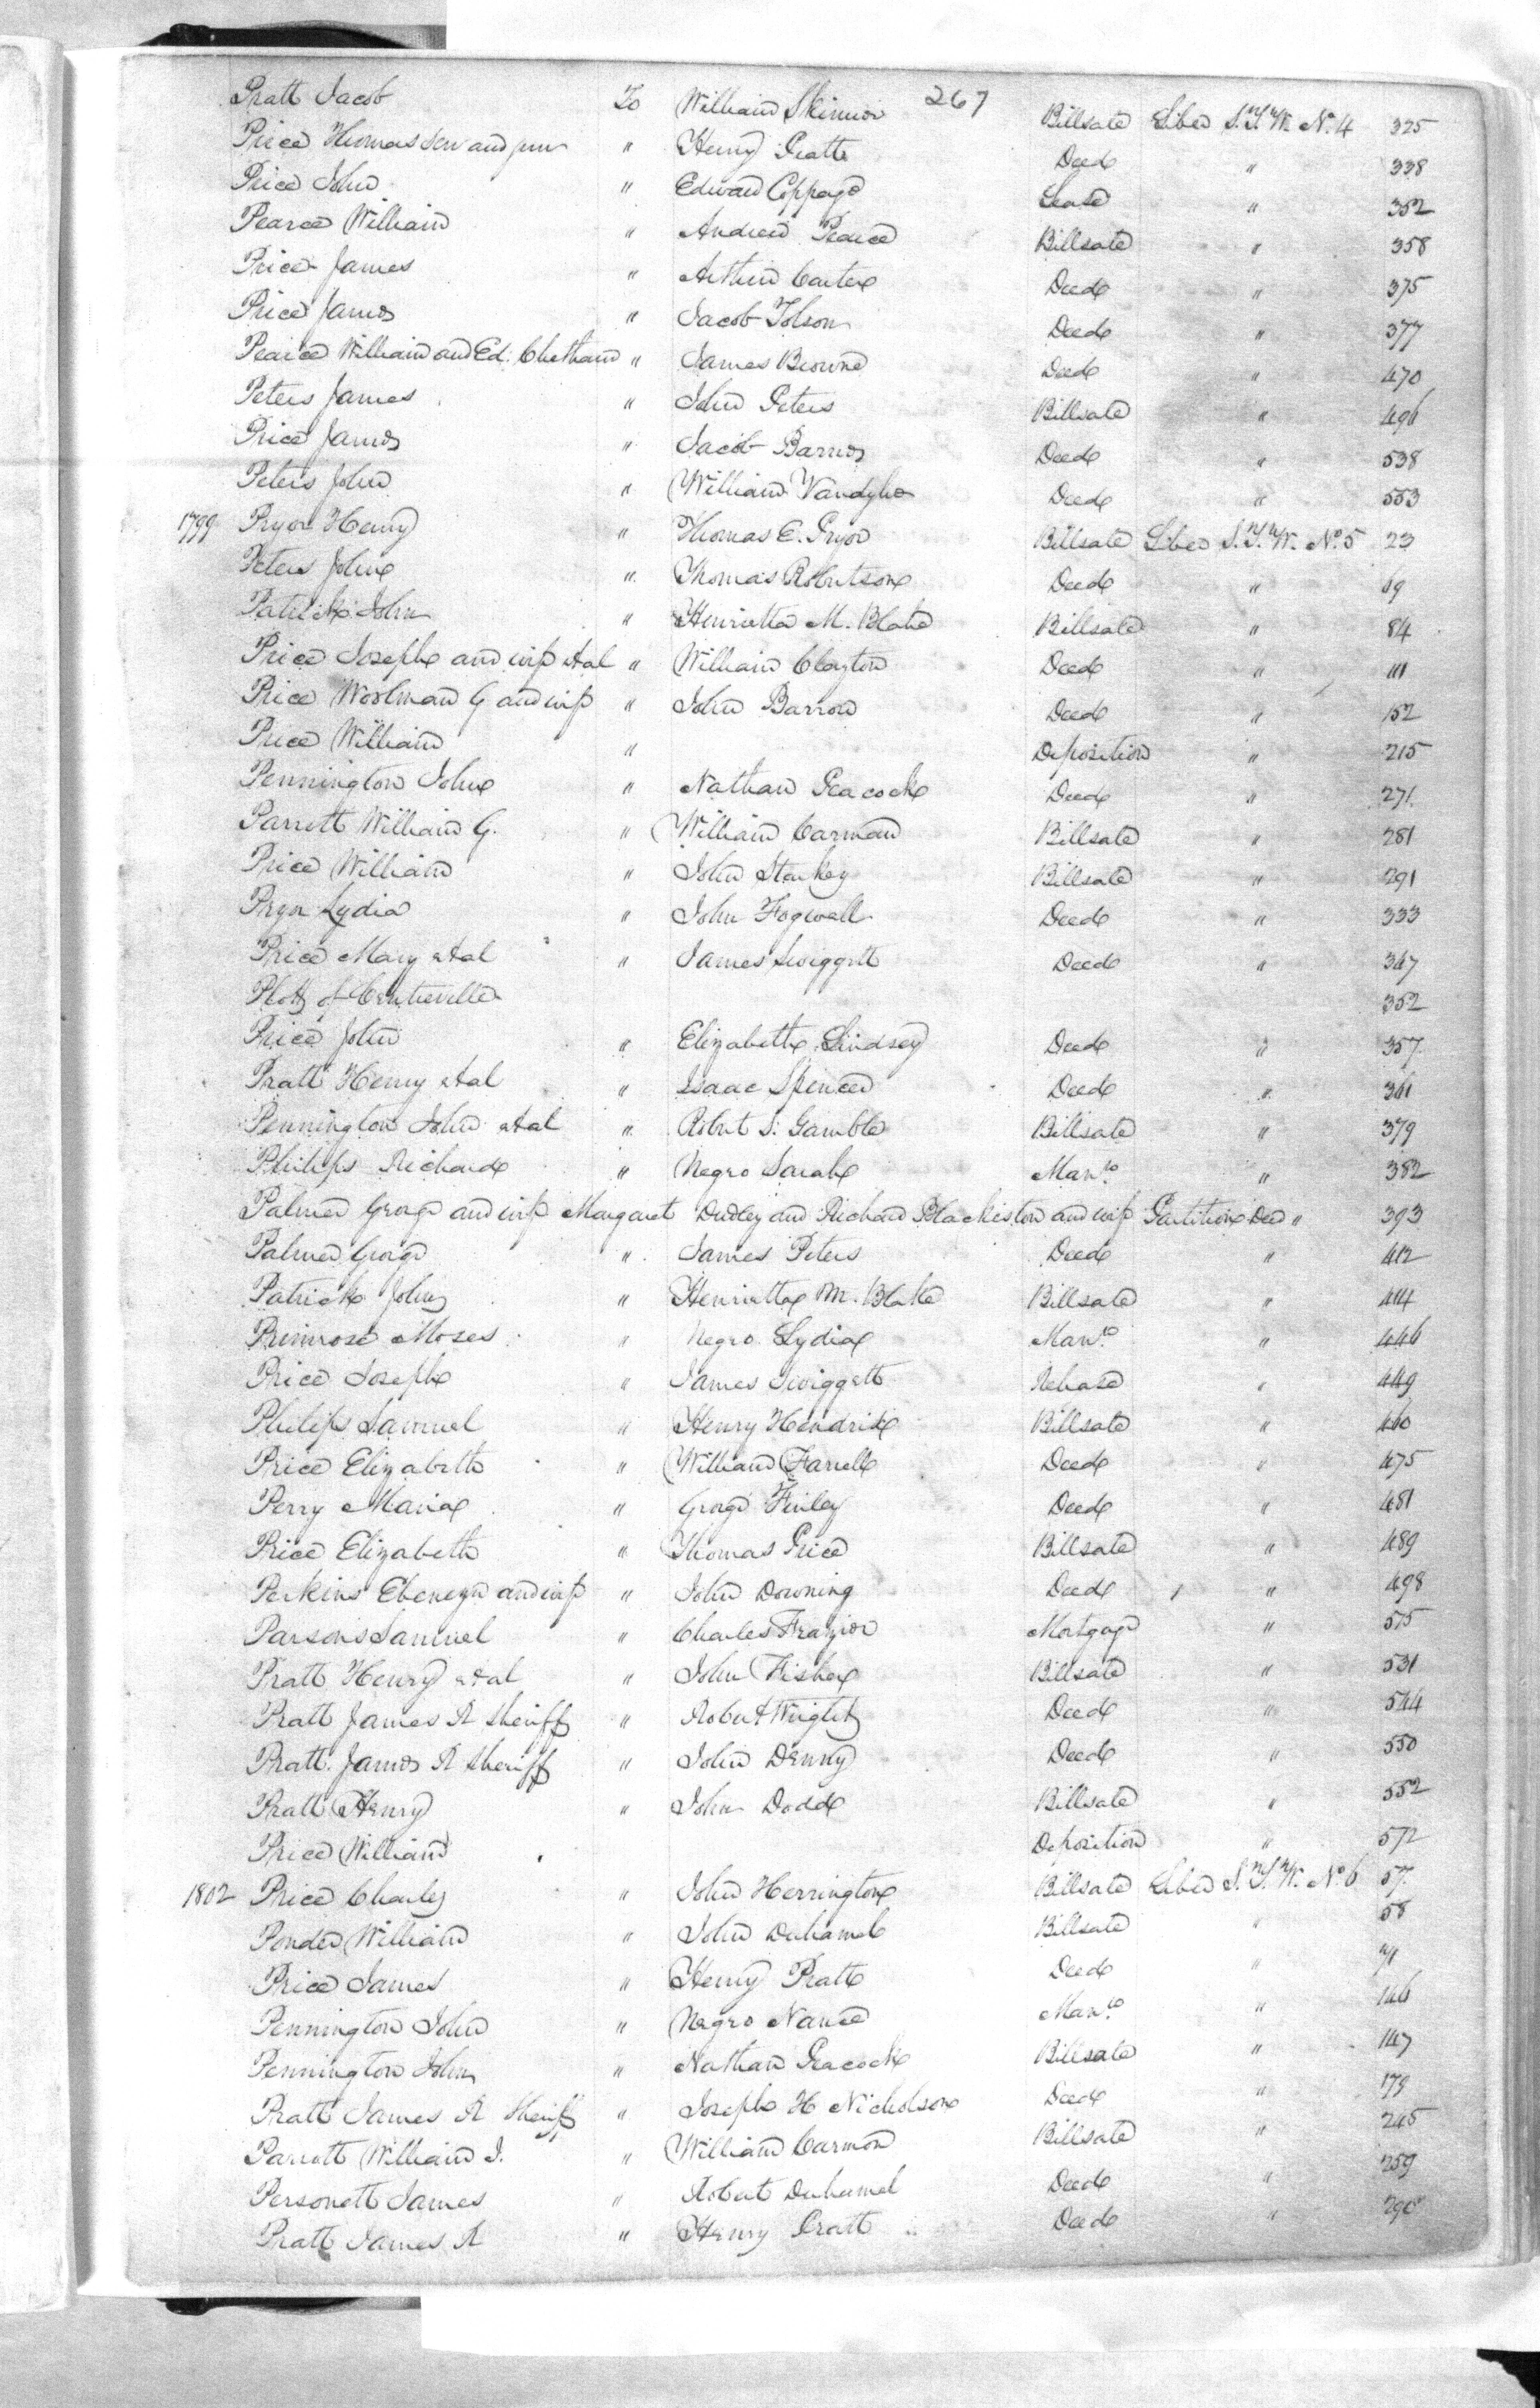 267
Pratt Jacob To William Skinner Billsale Liber S.T.W. No. 4 325
Price Thomas Sen and jun " Henry Pratt Deed " 338
Price John " Edward Coppage Lease " 352
Pearce William " Andrew Pearce Billsale " 358
Price James " Arthur Carter Deed " 375
Price James " Jacob Tolson Deed " 377
Pearce William and Ed. Chetham " James Browne Deed " 470
Peters James " John Peters Billsale " 496
Price James " Jacob Barnes Deed " 538
Peters John " William Vandyke Deed " 553
1799 Pryor Henry " Thomas E. Pryor Billsale Liber S.T.W. No. 5 23
Peters John " Thomas Robertson Deed " 69
Patrick John " Henrietta M. Blake Billsale " 84
Price Joseph and wife et al " William Clayton Deed " 111
Price Woolman G and wife " John Barrow Deed " 152
Price William " Deposition " 215
Pennington John " Nathan Peacock Deed " 271
Parrott William G. " William Carman Billsale " 281
Price William " John Starkey Billsale " 291
Pryor Lydia " John Fogwell Deed " 333
Price Mary et al " James Swiggett Deed " 347
Plott of Centreville 352
Price John " Elizabeth Lindsey Deed " 357
Pratt Henry et al " Isaac Spencer Deed " 361
Pennington John et al " Robert S. Gamble Billsale " 379
Philips Richard " Negro Sarah Man.io " 382
Palmer George and wife Margaret Dudley and Richard Blackiston and wife Partition Deed " 393
Palmer George " James Peters Deed " 412
Patrick John " Henrietta M. Blake Billsale " 414
Primrose Moses " Negro Lydia Man.io " 446
Price Joseph " James Swiggett Release " 449
Philips Samuel " Henry Hendrix Billsale " 460
Price Elizabeth " William Farrell Deed " 475
Perry Maria " George Finley Deed " 481
Price Elizabeth " Thomas Price Billsale " 489
Perkins Ebenezer and wife " John Downing Deed " 498
Parsons Samuel " Charles Frazier Mortgage " 515
Pratt Henry et al " John Fisher Billsale " 531
Pratt James R Sheriff " Robert Wright Deed " 544
Pratt James R Sheriff " John Denny Deed " 550
Pratt Henry " John Dodd Billsale " 552
Price William Deposition " 572
1802 Price Charles " John Herrington Billsale Liber S.T.W. No. 6 57
Ponder William " John Duhamel Billsale " 58
Price James " Henry Pratt Deed " 71
Pennington John " Negro Nance Man.io " 146
Pennington John " Nathan Peacock Billsale " 147
Pratt James R Sheriff " Joseph H Nicholson Deed " 179
Parrott William I. " William Carmon Billsale " 245
Personett James " Robert Duhamel Deed " 259
Pratt James R " Henry Pratt Deed " 290